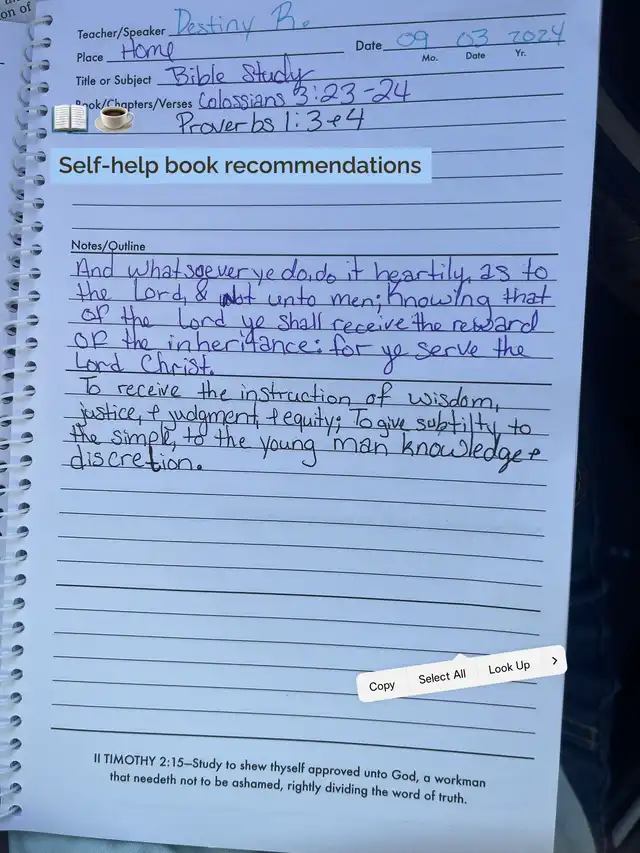 on of
Teacher/Speaker Destiny R.
Place Home Date 09 03 2024
Mo. Date Yr.
Title or Subject Bible Study
Book/Chapters/Verses Colossians 3:23-24
Proverbs 1:3+4
Self-help book recommendations
Notes/Outline
And whatsoever ye do, do it heartily, as to
the Lord, & not unto men; Knowing that
of the Lord ye shall receive the reward
of the inheritance: for ye serve the
Lord Christ.
To receive the instruction of wisdom,
justice, + judgment, + equity; To give subtilty to
the simple, to the young man knowledge +
discretion.
Copy Select All Look Up >
II TIMOTHY 2:15—Study to shew thyself approved unto God, a workman
that needeth not to be ashamed, rightly dividing the word of truth.